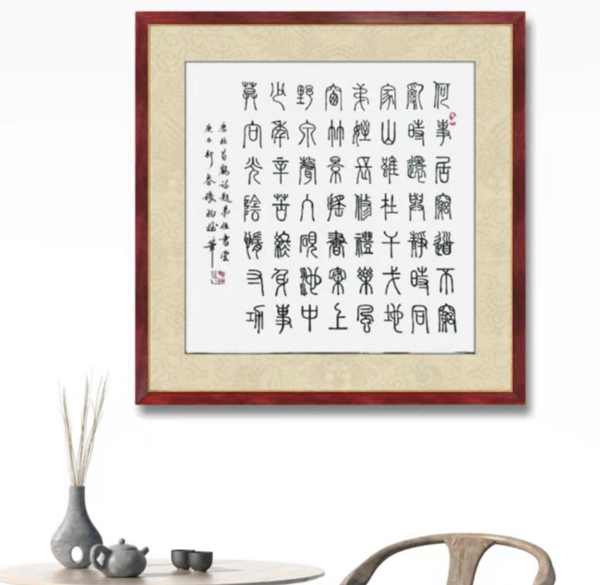 何事居窮道不窮
亂時還與靜時同
家山雖在干戈地
弟姪長修禮樂風
窗竹景搖書案上
野泉聲入硯池中
少年辛苦終身事
莫向光陰惰寸功
唐杜荀鶴詩題弟姪書堂
庚子新春